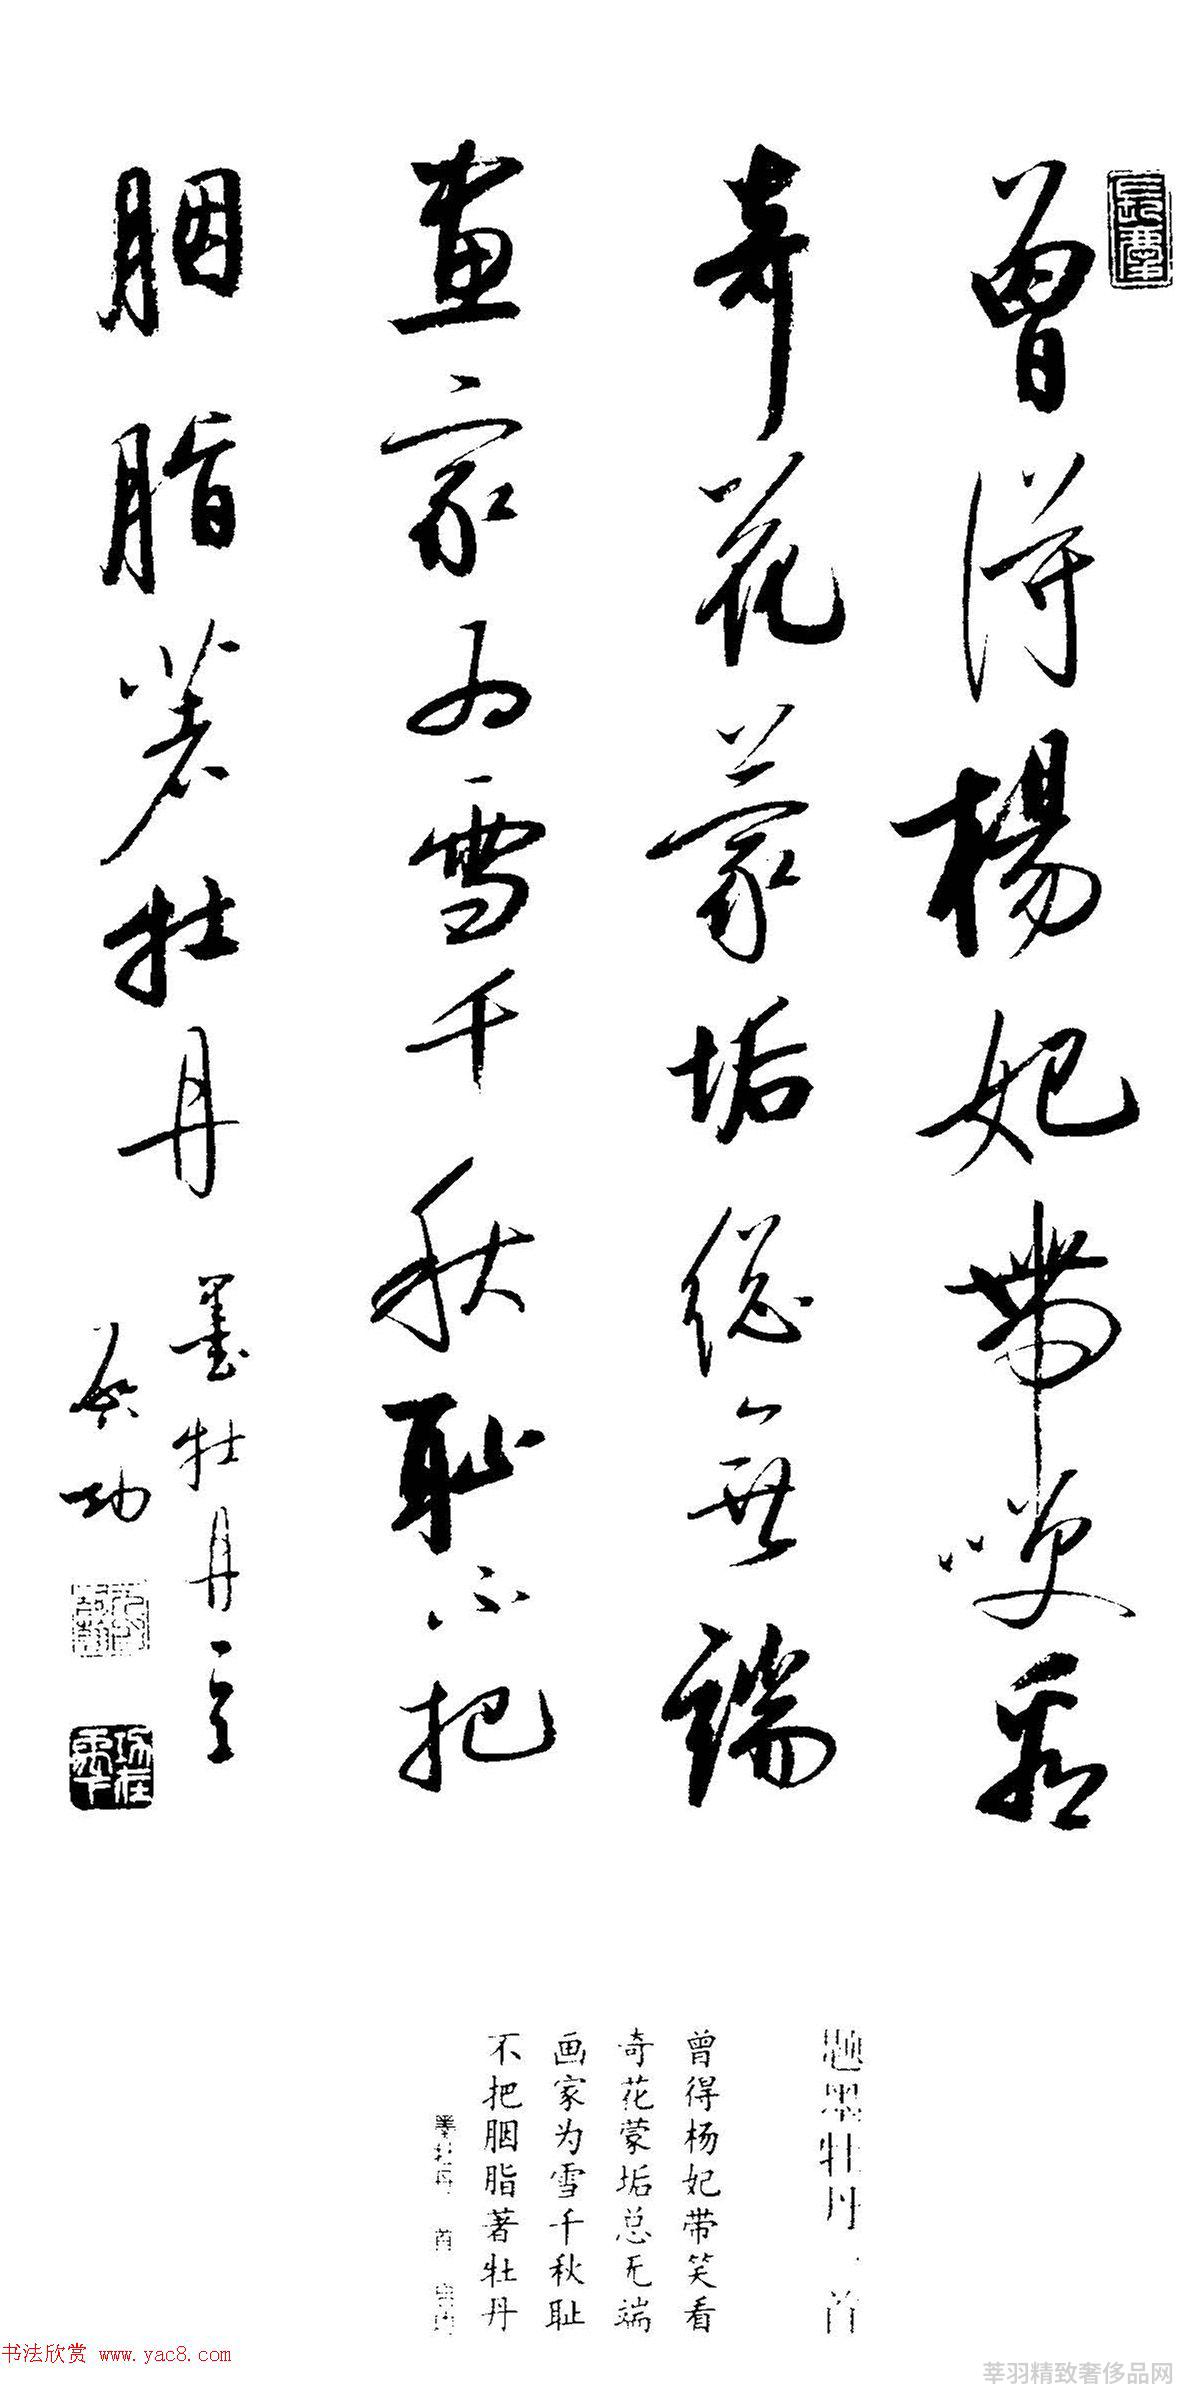 曾得楊妃帶咲看
奇花蒙垢總無端
畫家為雪千秋恥不把
胭脂著牡丹
墨牡丹一首
啟功
题墨牡丹一首
曾得杨妃带笑看
奇花蒙垢总无端
画家为雪千秋耻
不把胭脂著牡丹
墨牡丹 首
书法欣赏 www.yac8.com
莘羽精致奢侈品网